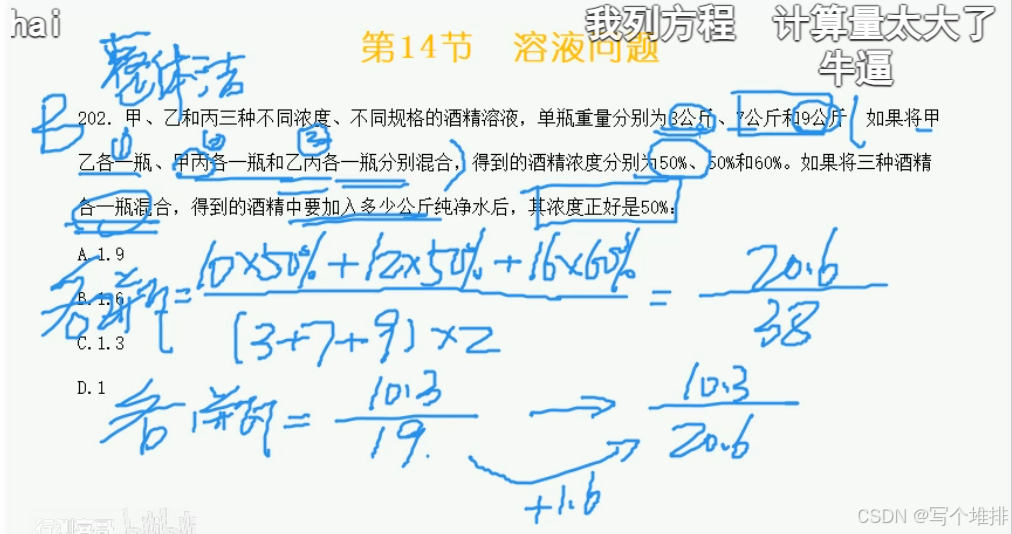 hai
我列方程 计算量太大了
第14节 溶液问题
牛逼
整体法
B
202. 甲、乙和丙三种不同浓度、不同规格的酒精溶液，单瓶重量分别为3公斤、7公斤和9公斤，如果将甲
① ② ③
乙各一瓶、甲丙各一瓶和乙丙各一瓶分别混合，得到的酒精浓度分别为50%、50%和60%。如果将三种酒精
各一瓶混合，得到的酒精中要加入多少公斤纯净水后，其浓度正好是50%：
A.1.9
B.1.6
C.1.3
D.1
各2瓶 = 10×50%+12×50%+16×60% / (3+7+9)×2 = 20.6 / 38
各1瓶 = 10.3 / 19 → 10.3 / 20.6
+1.6
CSDN @写个堆排